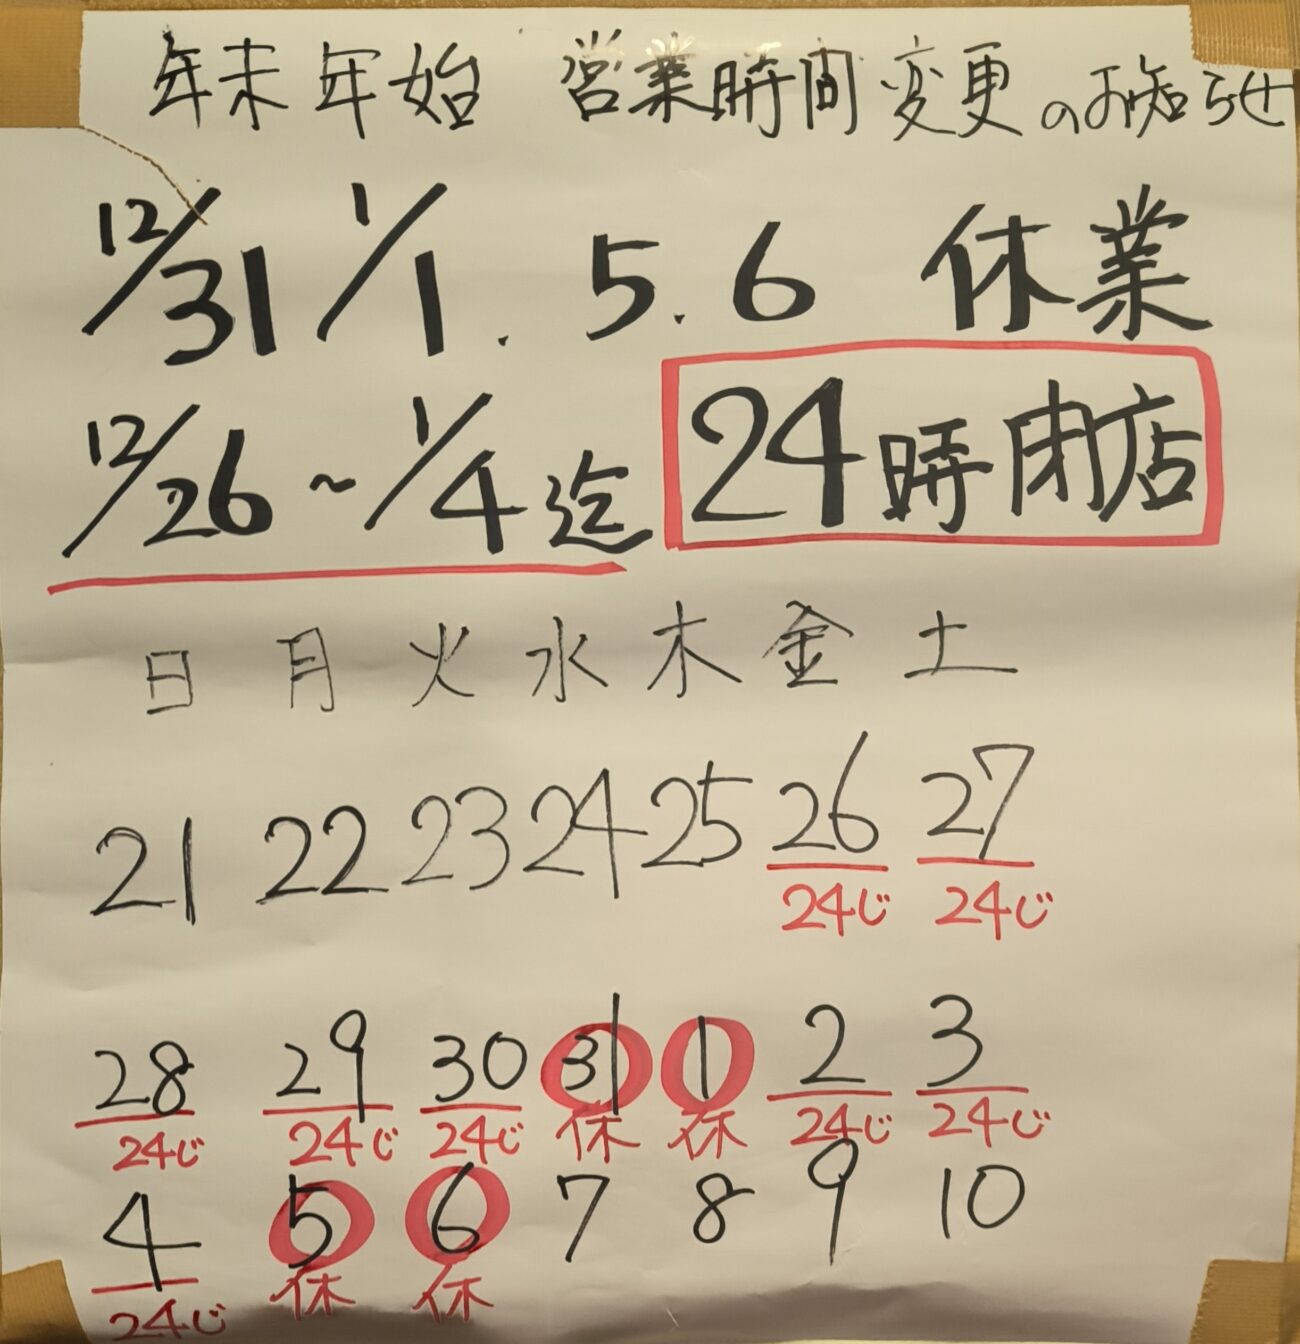 年末年始 営業時間変更のお知らせ
12/31 1/1. 5. 6 休業
12/26～1/4迄 24時閉店
日 月 火 水 木 金 土
21 22 23 24 25 26 27
24じ 24じ
28 29 30 31 1 2 3
24じ 24じ 24じ 休 休 24じ 24じ
4 5 6 7 8 9 10
24じ 休 休